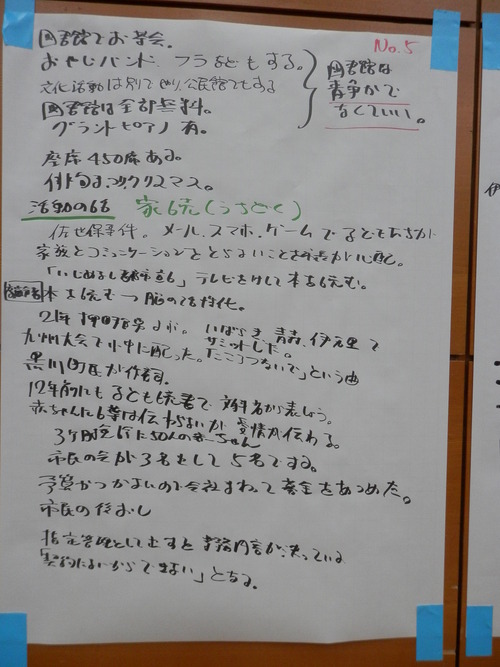 図書館でお茶会。
No.5
おやじバンド、フラなどもする。
文化活動は別でやり公民館でもする
図書館は全部無料。
グランドピアノ有。
図書館は
静かで
なくていい。
座席450席ある。
俳句も、クリスマス。
活動の話 家読(うちどく)
佐世保事件。メール、スマホ、ゲームで子どもたちが
家族とコミュニケーションをとらないことを
テレビをけして本を読む。
本を読む→脳の活性化。
21年
いばらき 青森、伊万里で
サミットした。
九州大会で小中に配った。「ここうつないで」という曲
黒川町民が作詞。
12年前にも子ども読書で
赤ちゃんに言葉は伝わらないが愛情が伝わる。
3ヶ月
に50人の赤ちゃん
市民の会が3名をして5名でする。
予算がつかないので会社まわって募金をあつめた。
市民の後おし
指定管理としてだすと事務内容が決っている
「契約にないからできない」となる。